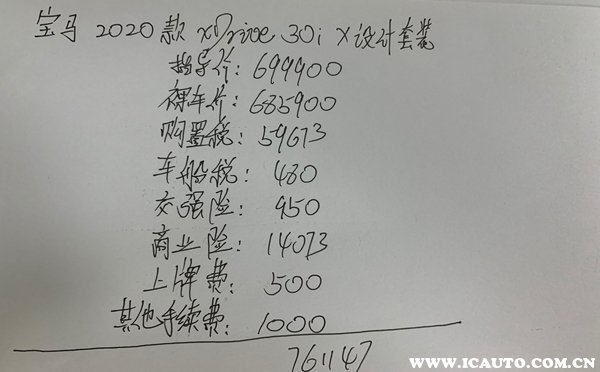 宝马 2020款 xDrive 30i X设计套装
指导价: 699900
裸车价: 685900
购置税: 59673
车船税: 480
交强险: 950
商业险: 14073
上牌费: 500
其他手续费: 1000
761147
WWW.ICAUTO.COM.CN